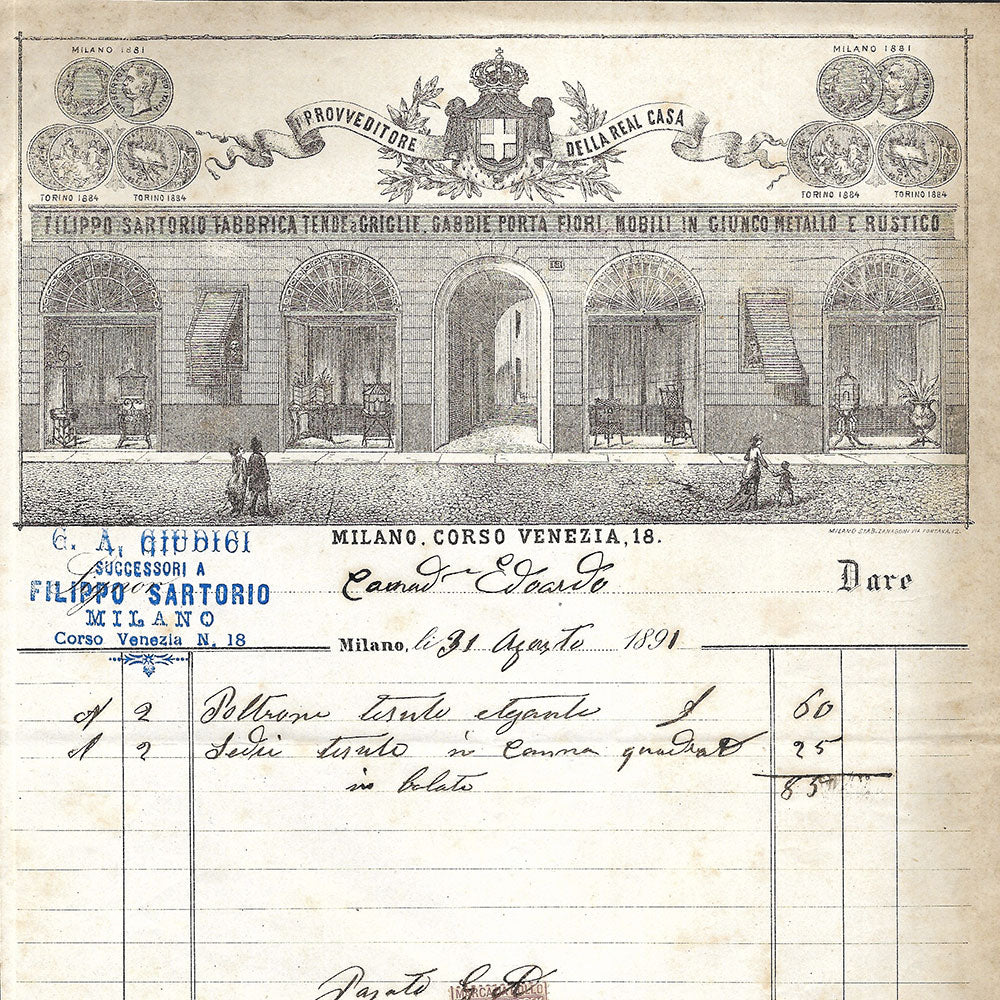 MILANO 1881
MILANO 1881
PROVVEDITORE DELLA REAL CASA
TORINO 1884 TORINO 1884
TORINO 1884 TORINO 1884
FILIPPO SARTORIO FABBRICA TENDE e GRIGLIE, GABBIE PORTA FIORI, MOBILI IN GIUNCO METALLO E RUSTICO
MILANO. CORSO VENEZIA, 18.
G. A. GIUDICI
SUCCESSORI A
FILIPPO SARTORIO
MILANO
Corso Venezia N. 18
Signor Edoardo Dare
Milano, li 31 Agosto 1891
N 2 Poltrone tessute elegante £ 60
2 Sedie tessute in Canna 25
in
85
Pagato
MARCA DA BOLLO